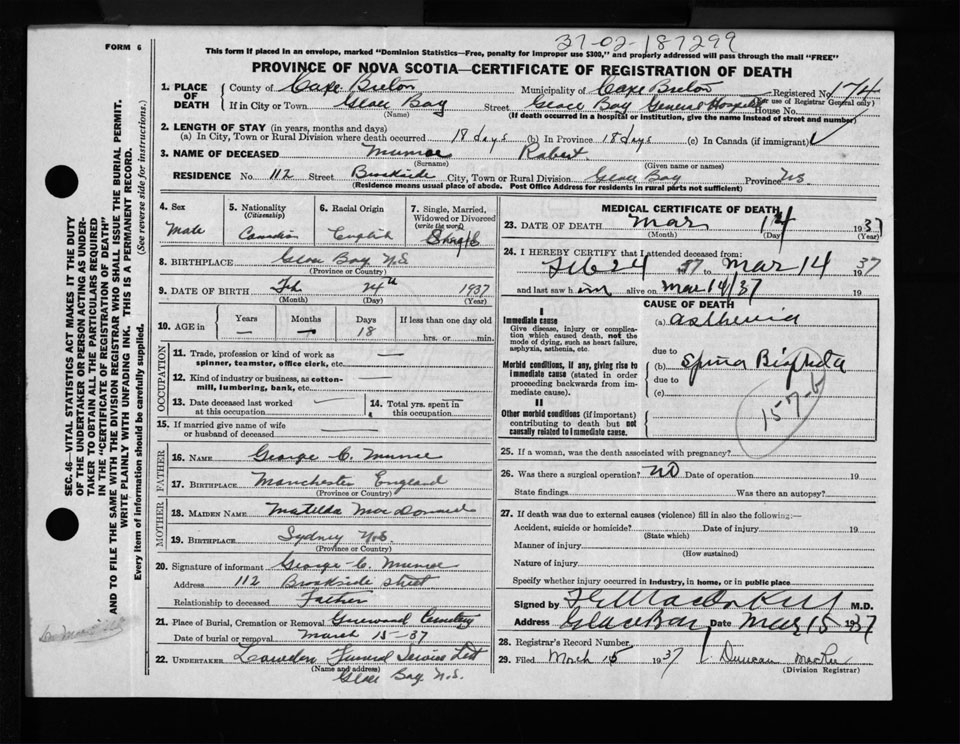 37-02-187299
FORM 6
This form if placed in an envelope, marked "Dominion Statistics—Free, penalty for improper use $300," and properly addressed will pass through the mail "FREE"
PROVINCE OF NOVA SCOTIA—CERTIFICATE OF REGISTRATION OF DEATH
1. PLACE OF DEATH { County of Cape Breton Municipality of Cape Breton Registered No. 174
(For use of Registrar General only)
If in City or Town Glace Bay Street Glace Bay General Hospital House No.
(Name) (If death occurred in a hospital or institution, give the name instead of street and number)
2. LENGTH OF STAY (in years, months and days)
(a) In City, Town or Rural Division where death occurred 18 days (b) In Province 18 days (c) In Canada (if immigrant)
3. NAME OF DECEASED Munroe Robert
(Surname) (Given name or names)
RESIDENCE No. 112 Street Brookside City, Town or Rural Division Glace Bay Province N.S.
(Residence means usual place of abode. Post Office Address for residents in rural parts not sufficient)
4. Sex 5. Nationality (Citizenship) 6. Racial Origin 7. Single, Married, Widowed or Divorced (write the word)
Male Canadian English Single
8. BIRTHPLACE Glace Bay N.S.
(Province or Country)
9. DATE OF BIRTH Feb 24th 1937
(Month) (Day) (Year)
10. AGE in Years Months Days If less than one day old
— — 18 hrs. or min.
OCCUPATION
11. Trade, profession or kind of work as spinner, teamster, office clerk, etc. —
12. Kind of industry or business, as cotton-mill, lumbering, bank, etc. —
13. Date deceased last worked at this occupation — 14. Total yrs. spent in this occupation —
15. If married give name of wife or husband of deceased —
FATHER
16. NAME George C. Munroe
17. BIRTHPLACE Manchester England
(Province or Country)
MOTHER
18. MAIDEN NAME Matilda MacDonnell
19. BIRTHPLACE Sydney N.S.
(Province or Country)
20. Signature of informant George C. Munroe
Address 112 Brookside Street
Relationship to deceased Father
21. Place of Burial, Cremation or Removal Greenwood Cemetery
Date of burial or removal March 15-37
22. UNDERTAKER Lowden Funeral Service Ltd
(Name and address)
Glace Bay N.S.
MEDICAL CERTIFICATE OF DEATH
23. DATE OF DEATH Mar 14 1937
(Month) (Day) (Year)
24. I HEREBY CERTIFY that I attended deceased from:
Feb 24 37 to Mar 14 1937
and last saw him alive on Mar 14/37 19
CAUSE OF DEATH
I
Immediate cause
Give disease, injury or complication which caused death, not the mode of dying, such as heart failure, asphyxia, asthenia, etc.
(a) asthenia
due to
Morbid conditions, if any, giving rise to immediate cause (stated in order proceeding backwards from immediate cause).
(b) Spina Bifida
due to
(c)
157-b
II
Other morbid conditions (if important) contributing to death but not causally related to immediate cause.
25. If a woman, was the death associated with pregnancy?
26. Was there a surgical operation? NO Date of operation 19
State findings Was there an autopsy?
27. If death was due to external causes (violence) fill in also the following:—
Accident, suicide or homicide? Date of injury 19
(State which)
Manner of injury
(How sustained)
Nature of injury
Specify whether injury occurred in industry, in home, or in public place
Signed by M.D.
Address Glace Bay Date Mar 15 1937
28. Registrar's Record Number
29. Filed March 15 1937 Duncan MacRae
(Division Registrar)
SEC. 46—VITAL STATISTICS ACT MAKES IT THE DUTY
OF THE UNDERTAKER OR PERSON ACTING AS UNDER-
TAKER TO OBTAIN ALL THE PARTICULARS REQUIRED
IN THE "CERTIFICATE OF REGISTRATION OF DEATH"
AND TO FILE THE SAME WITH THE DIVISION REGISTRAR WHO SHALL ISSUE THE BURIAL PERMIT.
WRITE PLAINLY WITH UNFADING INK. THIS IS A PERMANENT RECORD.
Every item of information should be carefully supplied. (See reverse side for instructions.)